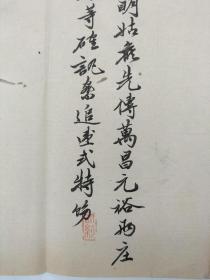 明姑飛先傳萬昌元裕兩庄
等確訊案追速式特飭